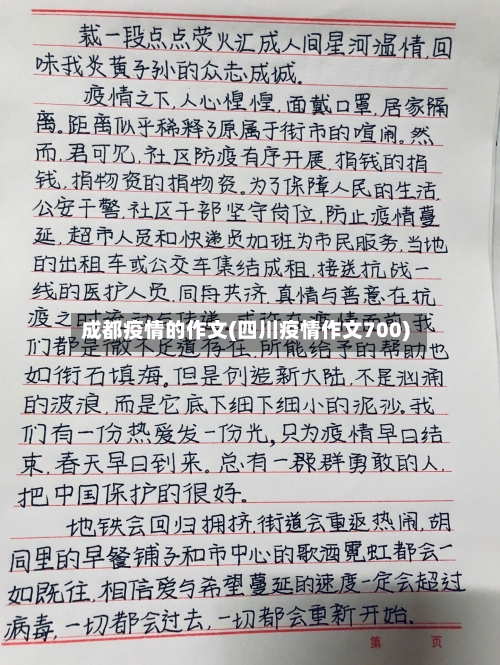 裁一段点点荧火汇成人间星河温情,回
味我炎黄子孙的众志成城。
疫情之下,人心惶惶,面戴口罩,居家隔
离。距离似乎稀释了原属于街市的喧闹。然
而,君可见,社区防疫有序开展,捐钱的捐
钱,捐物资的捐物资。为了保障人民的生活,
公安干警,社区干部坚守岗位,防止疫情蔓
延,超市人员和快递员加班为市民服务,当地
的出租车或公交车集结成租,接送抗战一
线的医护人员,同舟共济,真情与善意在抗
疫之
成都疫情的作文(四川疫情作文700)
我
们都是微不足道存在,所能给予的帮助也
如衔石填海。但是创造新大陆,不是汹涌
的波浪,而是它底下细下细小的泥沙。我
们有一份热爱发一份光,只为疫情早日结
束,春天早日到来。总有一群群勇敢的人,
把中国保护的很好。
地铁会回归拥挤,街道会重返热闹,胡
同里的早餐铺子和市中心的歌酒霓虹都会一
如既往,相信爱与希望蔓延的速度一定会超过
病毒,一切都会过去,一切都会重新开始。
第 页